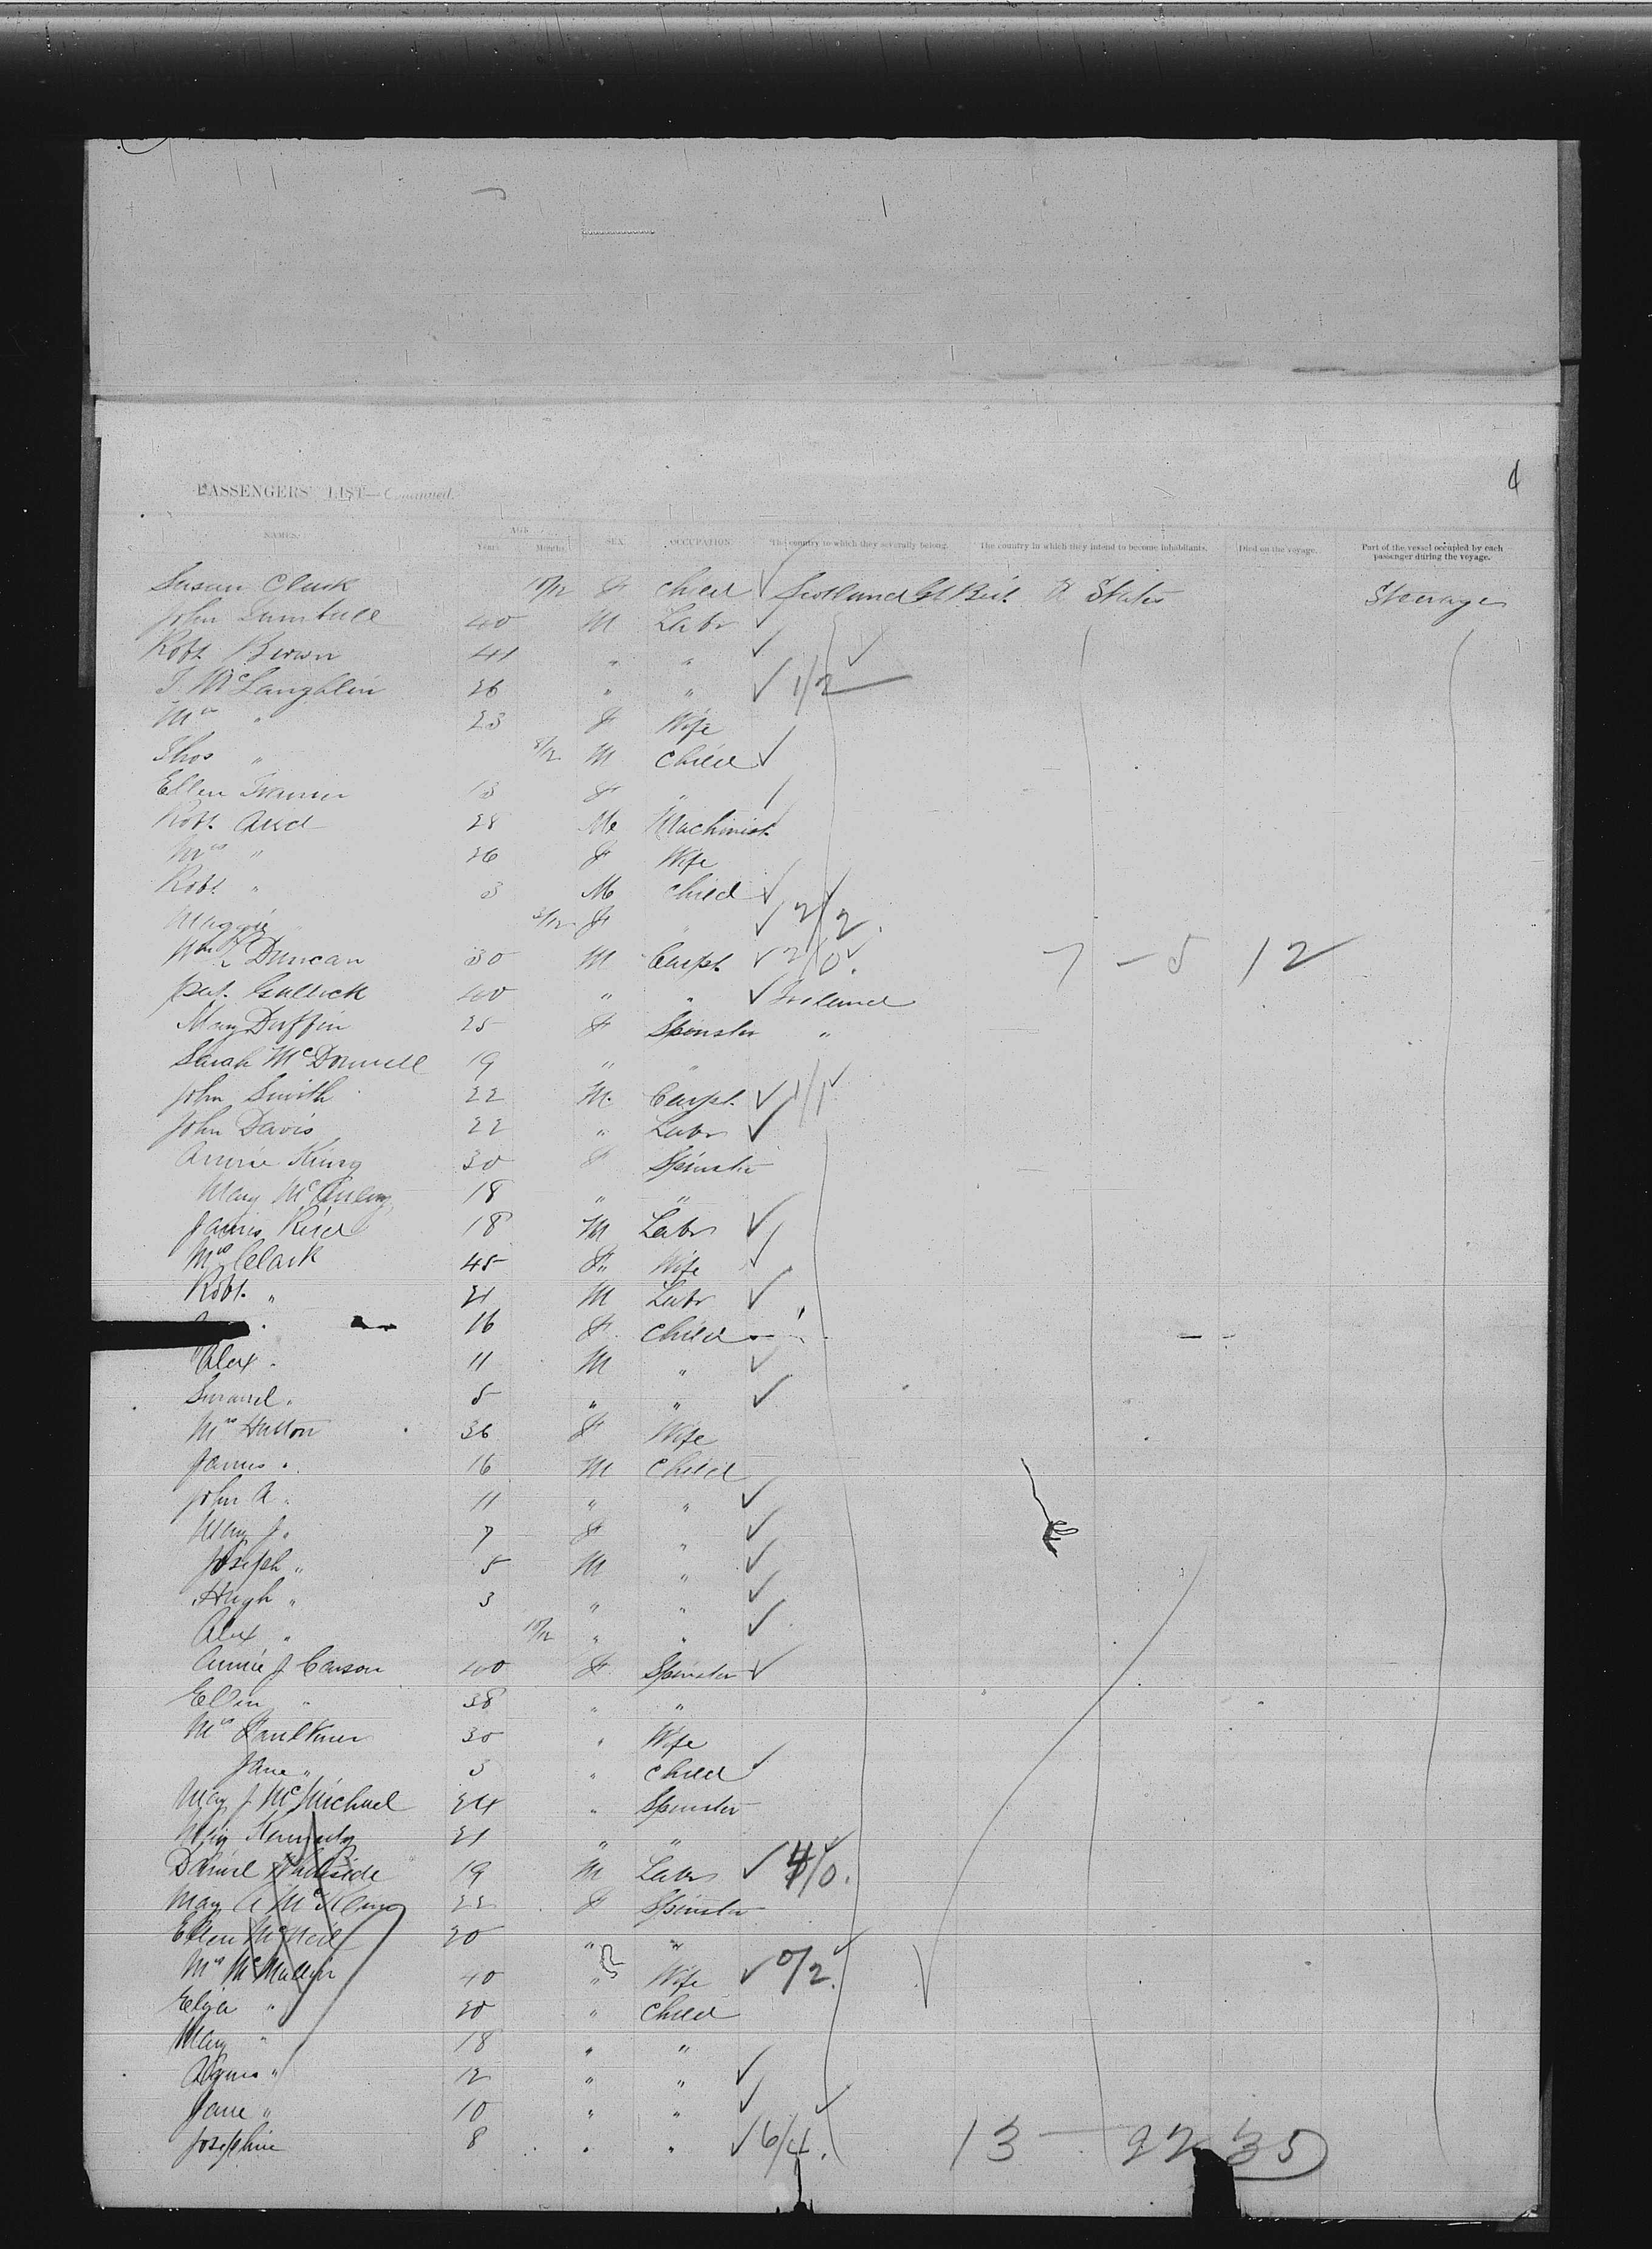 4
PASSENGERS' LIST—Continued.
NAMES. AGE. Years. Months. SEX. OCCUPATION. The country to which they severally belong. The country in which they intend to become inhabitants. Died on the voyage. Part of the vessel occupied by each passenger during the voyage.
Susan Clark 10/12 F Child Scotland Gt Brit. U States Steerage
John Turnbull 40 M Labr
Robt Brown 41 " "
T. McLaughlin 26 " " 1/2
Mrs " 23 F Wife
Thos " 8/12 M Child
Ellen 13 F "
Robt. Auld 28 M Machinist
Mrs " 26 F Wife
Robt " 3 M Child
Maggie " 3/12 F " 2/2.
Wm Duncan 30 M Carpt. 2/0. 7 – 5 12
Pat. Gullick 40 " " Ireland
Mary Duffin 25 F Spinster "
Sarah McDonnell 19 " "
John Smith 22 M. Carpt. 1/1
John Davis 22 " Labr
Annie King 30 F Spinster
Mary 18 " "
James Reid 18 M Labr
Mrs Clark 45 F Wife
Robt. " 21 M Labr
16 F Child
Alex " 11 M "
Samuel " 5 " "
Mrs Hutton 36 F Wife
James " 16 M Child
John A " 11 " "
Mary J " 7 F "
Joseph " 5 M "
Hugh " 3 " "
Alex " 10/12 " "
Annie J Carson 40 F Spinster
Ellen " 38 " "
Mrs Faulkner 30 " Wife
Jane " 3 " Child
Mary J McMichael 24 " Spinster
Kennedy 21 " "
Daniel 19 M Labr 4/0.
Mary A McKenna 22 F Spinster
Ellen McNeil 20 " "
Mrs McMullen 40 " Wife 0/2.
Eliza " 20 " Child
Mary " 18 " "
Agnes " 12 " "
Jane " 10 " "
Josephine 8 " " 6/4. 13 – 22 35